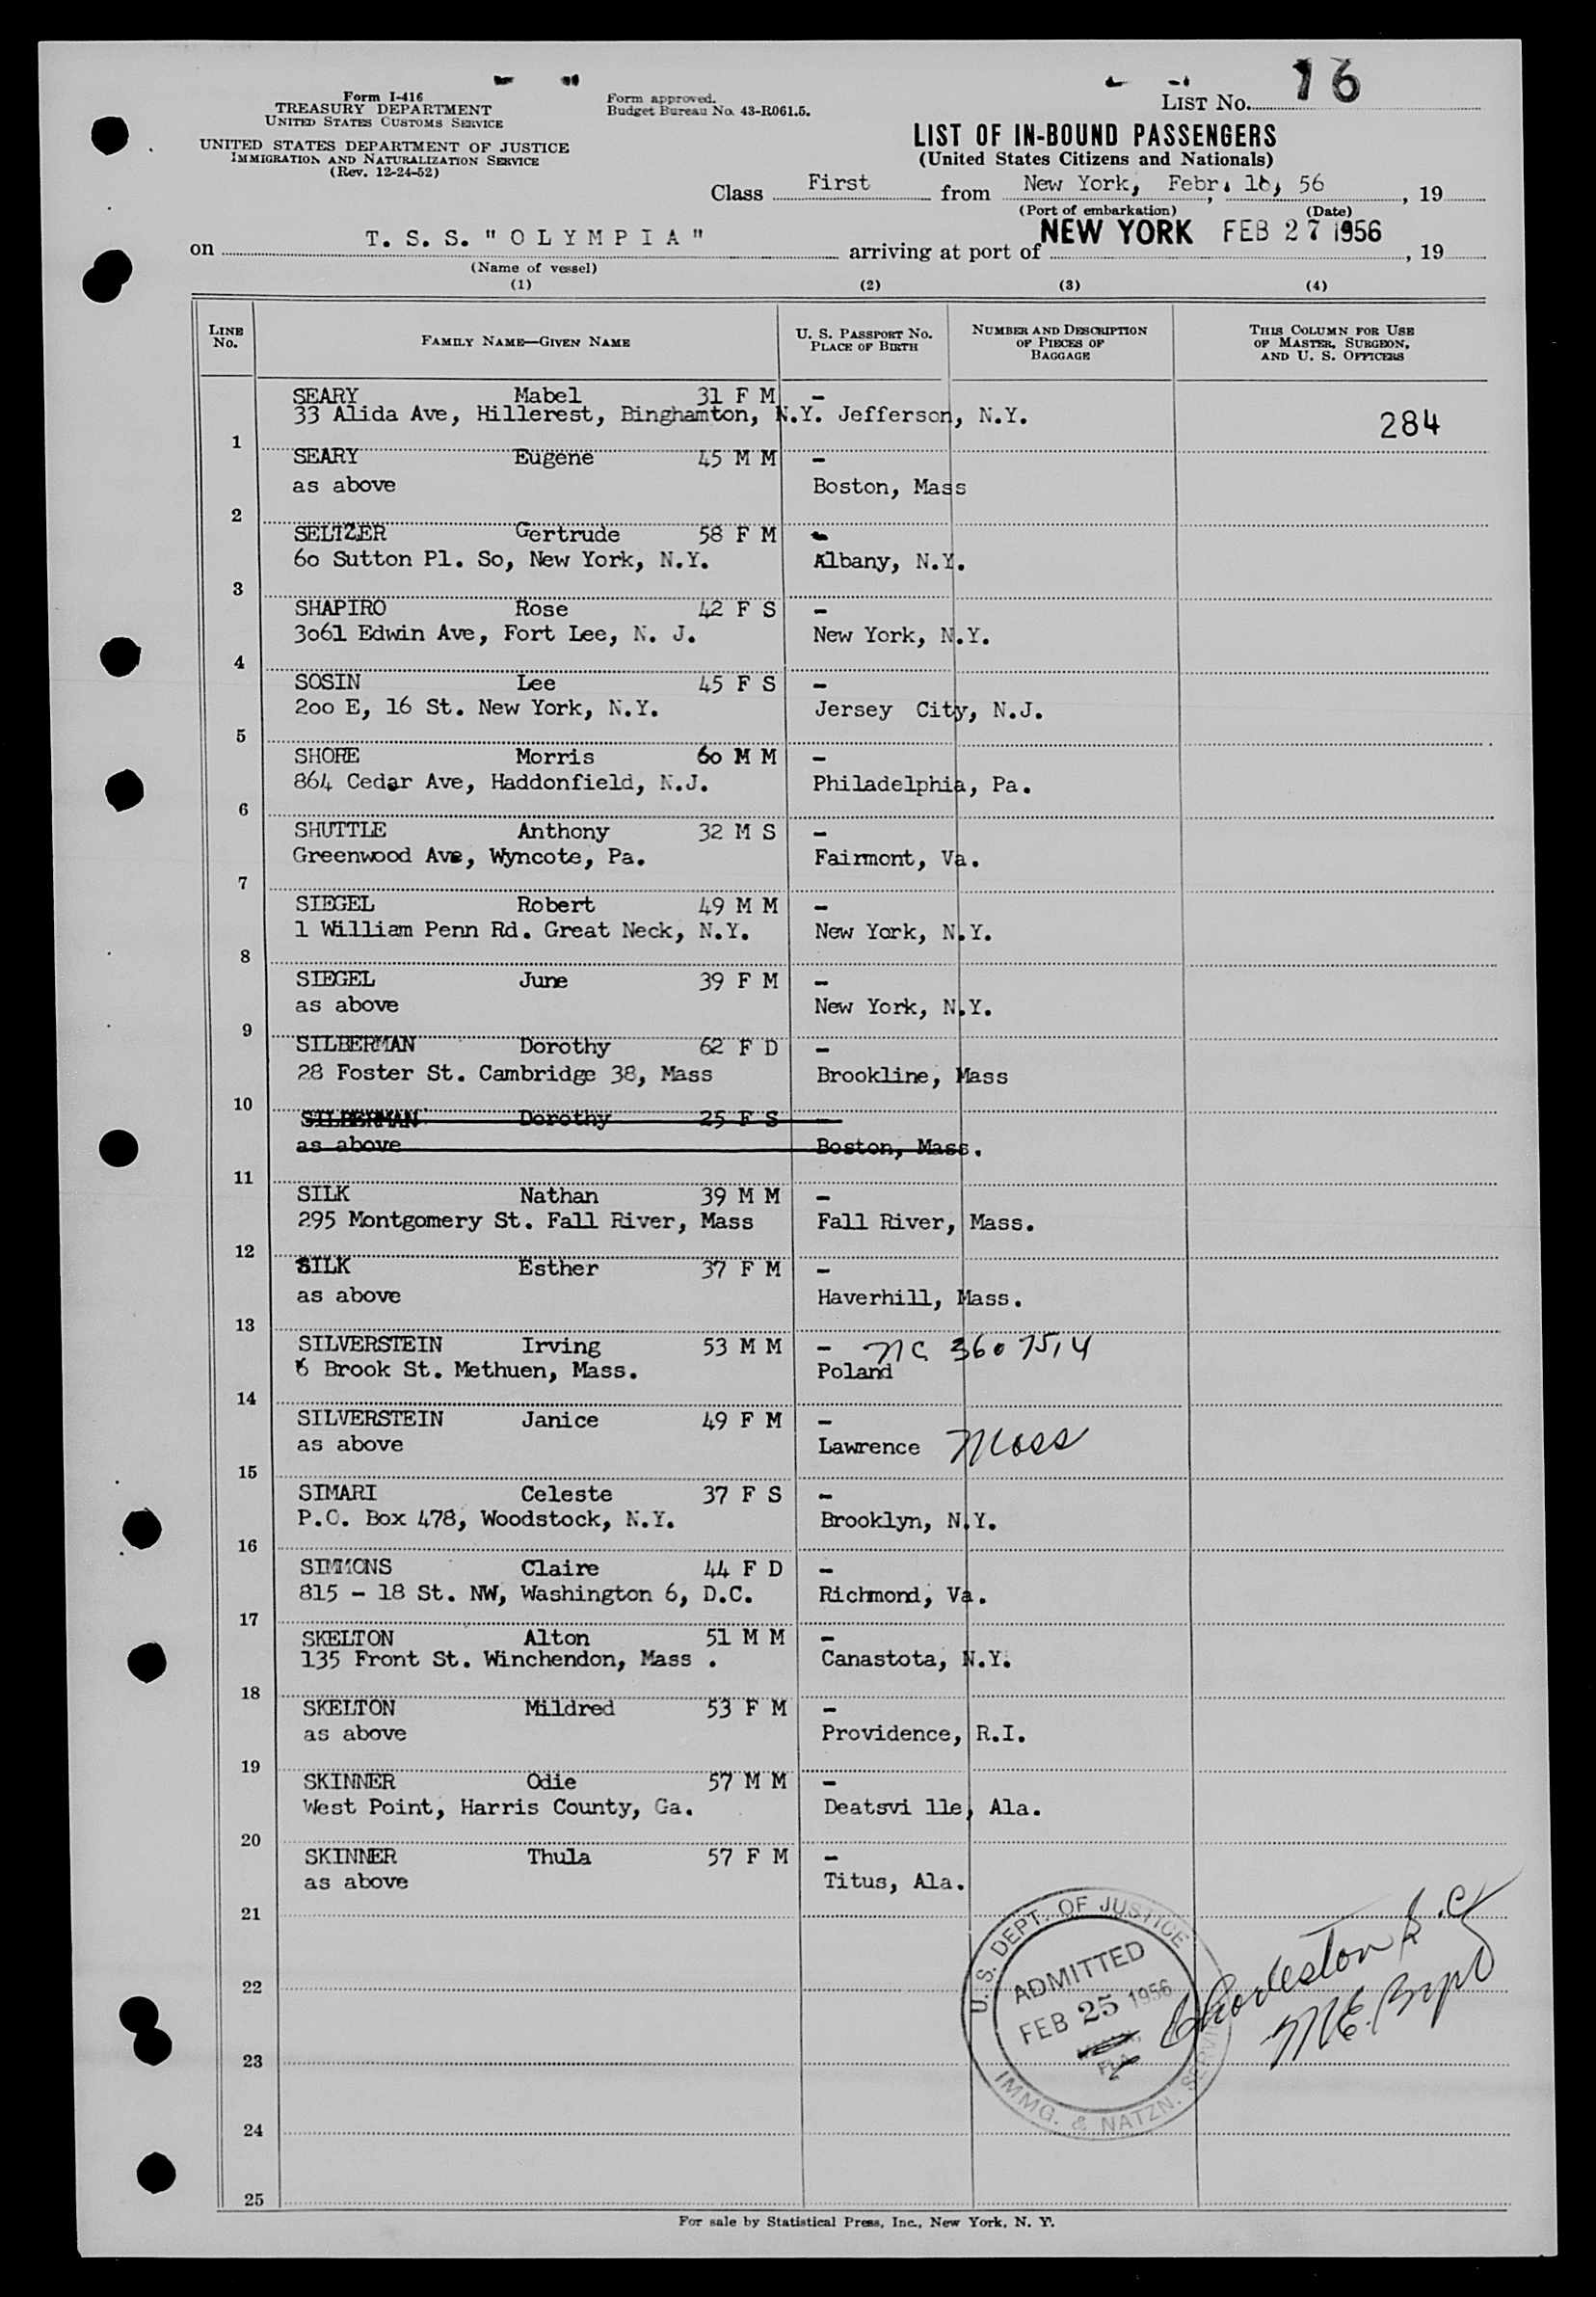 Form I-416
TREASURY DEPARTMENT
UNITED STATES CUSTOMS SERVICE
UNITED STATES DEPARTMENT OF JUSTICE
IMMIGRATION AND NATURALIZATION SERVICE
(Rev. 12-24-52)
Form approved.
Budget Bureau No. 43-R061.5.
LIST NO. 16
LIST OF IN-BOUND PASSENGERS
(United States Citizens and Nationals)
Class First from New York, Febr. 10, 56, 19
(Port of embarkation) (Date)
on T. S. S. "OLYMPIA" arriving at port of NEW YORK FEB 27 1956, 19
(Name of vessel)
(1) (2) (3) (4)
LINE No. FAMILY NAME—GIVEN NAME U. S. PASSPORT NO. PLACE OF BIRTH NUMBER AND DESCRIPTION OF PIECES OF BAGGAGE THIS COLUMN FOR USE OF MASTER, SURGEON, AND U. S. OFFICERS
SEARY Mabel 31 F M -
33 Alida Ave, Hillerest, Binghamton, N.Y. Jefferson, N.Y. 284
1
SEARY Eugene 45 M M -
as above Boston, Mass
2
SELTZER Gertrude 58 F M -
60 Sutton Pl. So, New York, N.Y. Albany, N.Y.
3
SHAPIRO Rose 42 F S -
3061 Edwin Ave, Fort Lee, N. J. New York, N.Y.
4
SOSIN Lee 45 F S -
200 E, 16 St. New York, N.Y. Jersey City, N.J.
5
SHORE Morris 60 M M -
864 Cedar Ave, Haddonfield, N.J. Philadelphia, Pa.
6
SHUTTLE Anthony 32 M S -
Greenwood Ave, Wyncote, Pa. Fairmont, Va.
7
SIEGEL Robert 49 M M -
1 William Penn Rd. Great Neck, N.Y. New York, N.Y.
8
SIEGEL June 39 F M -
as above New York, N.Y.
9
SILBERMAN Dorothy 62 F D -
28 Foster St. Cambridge 38, Mass Brookline, Mass
10
SILBERMAN Dorothy 25 F S -
as above Boston, Mass.
11
SILK Nathan 39 M M -
295 Montgomery St. Fall River, Mass Fall River, Mass.
12
SILK Esther 37 F M -
as above Haverhill, Mass.
13
SILVERSTEIN Irving 53 M M - NC 3607514
6 Brook St. Methuen, Mass. Poland
14
SILVERSTEIN Janice 49 F M -
as above Lawrence Mass
15
SIMARI Celeste 37 F S -
P.O. Box 478, Woodstock, N.Y. Brooklyn, N.Y.
16
SIMMONS Claire 44 F D -
815 - 18 St. NW, Washington 6, D.C. Richmond, Va.
17
SKELTON Alton 51 M M -
135 Front St. Winchendon, Mass . Canastota, N.Y.
18
SKELTON Mildred 53 F M -
as above Providence, R.I.
19
SKINNER Odie 57 M M -
West Point, Harris County, Ga. Deatsvi lle, Ala.
20
SKINNER Thula 57 F M -
as above Titus, Ala.
21
22
23
24
25
U. S. DEPT. OF JUSTICE
ADMITTED
FEB 25 1956
FLA
IMMG. & NATZN. SERVICE
Charleston S.C.
For sale by Statistical Press, Inc., New York, N. Y.